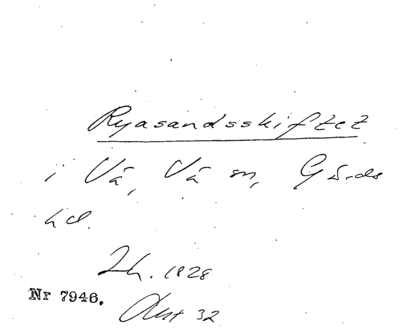 Ryasandsskiftet
i Vä, Vä sn, Gärds
hd.
Lh. 1828
Nr 7946.
Akt 32